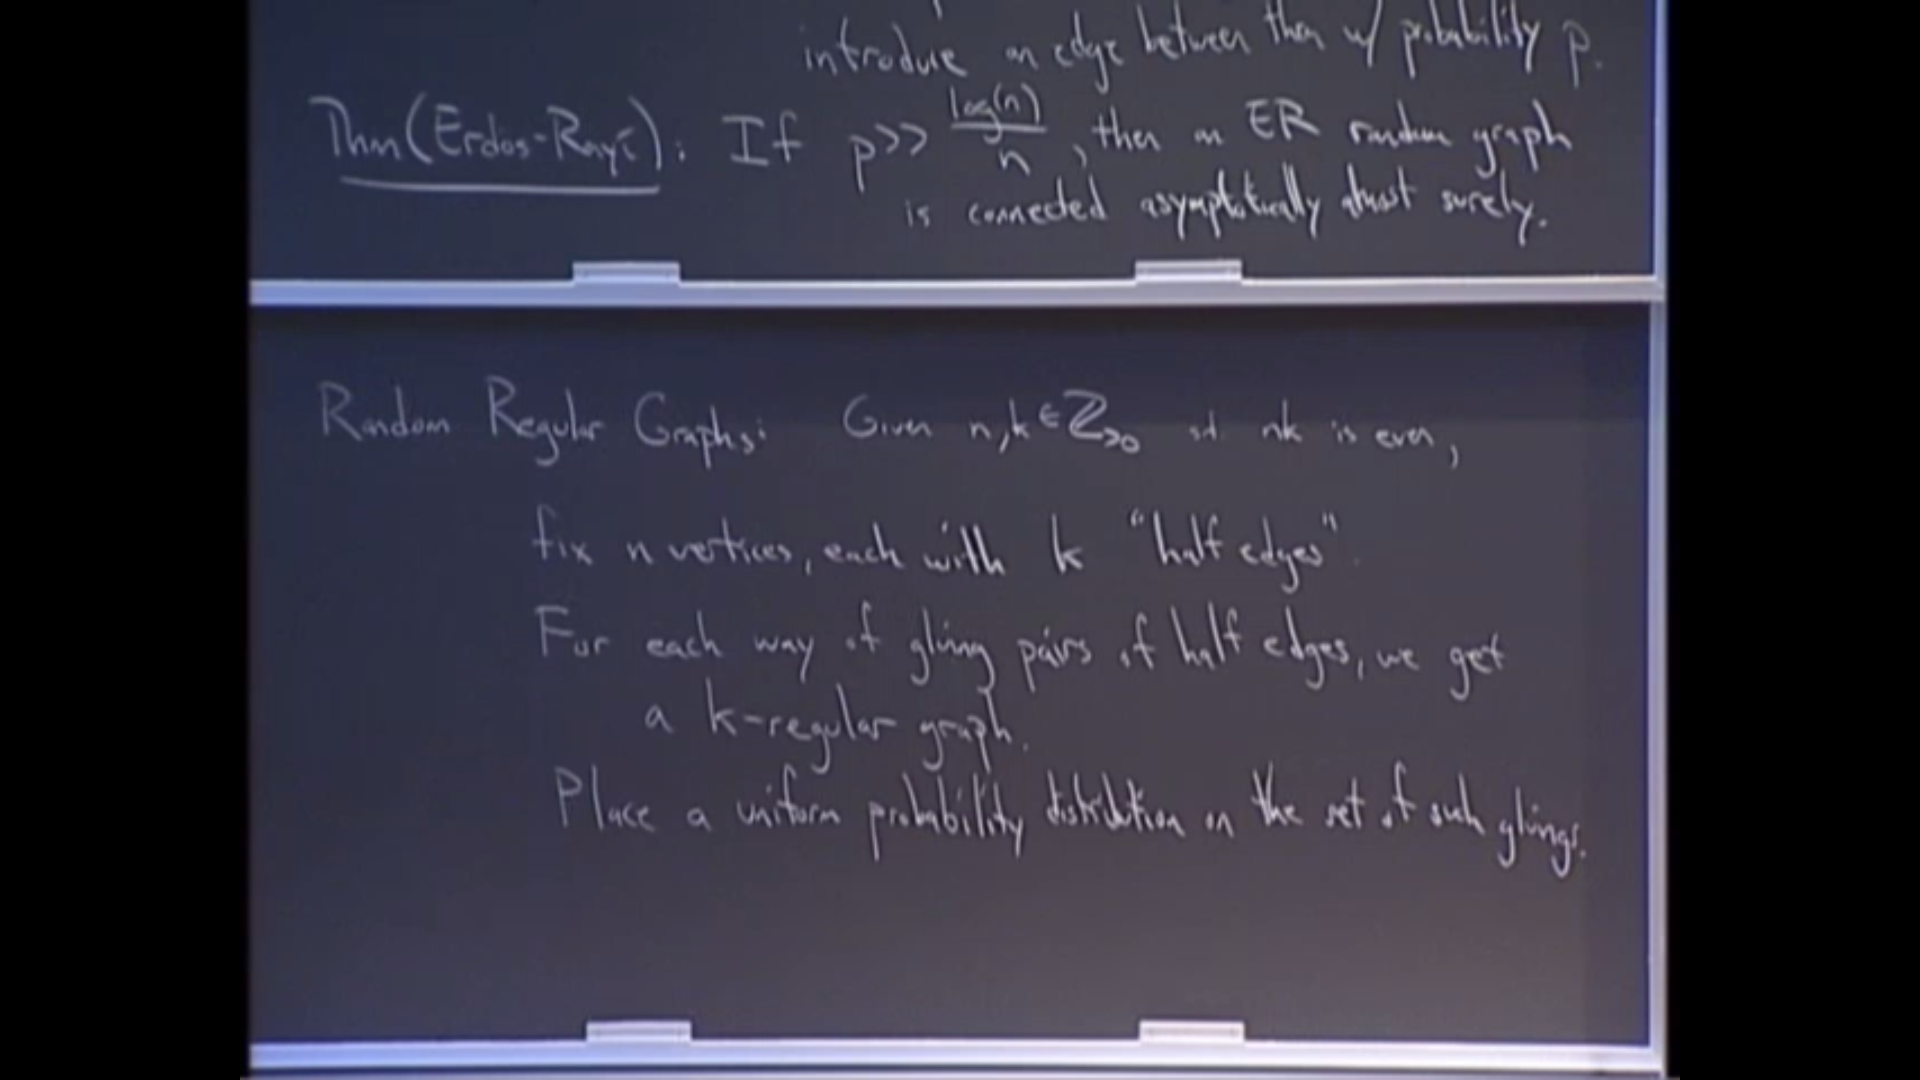 introduce an edge between them w/ probability p.
Thm (Erdos-Renyi): If p >> log(n)/n, then an ER random graph
is connected asymptotically almost surely.
Random Regular Graphs: Given n,k ∈ ℤ>0 s.t. nk is even,
fix n vertices, each with k "half edges".
For each way of gluing pairs of half edges, we get
a k-regular graph.
Place a uniform probability distribution on the set of such gluings.